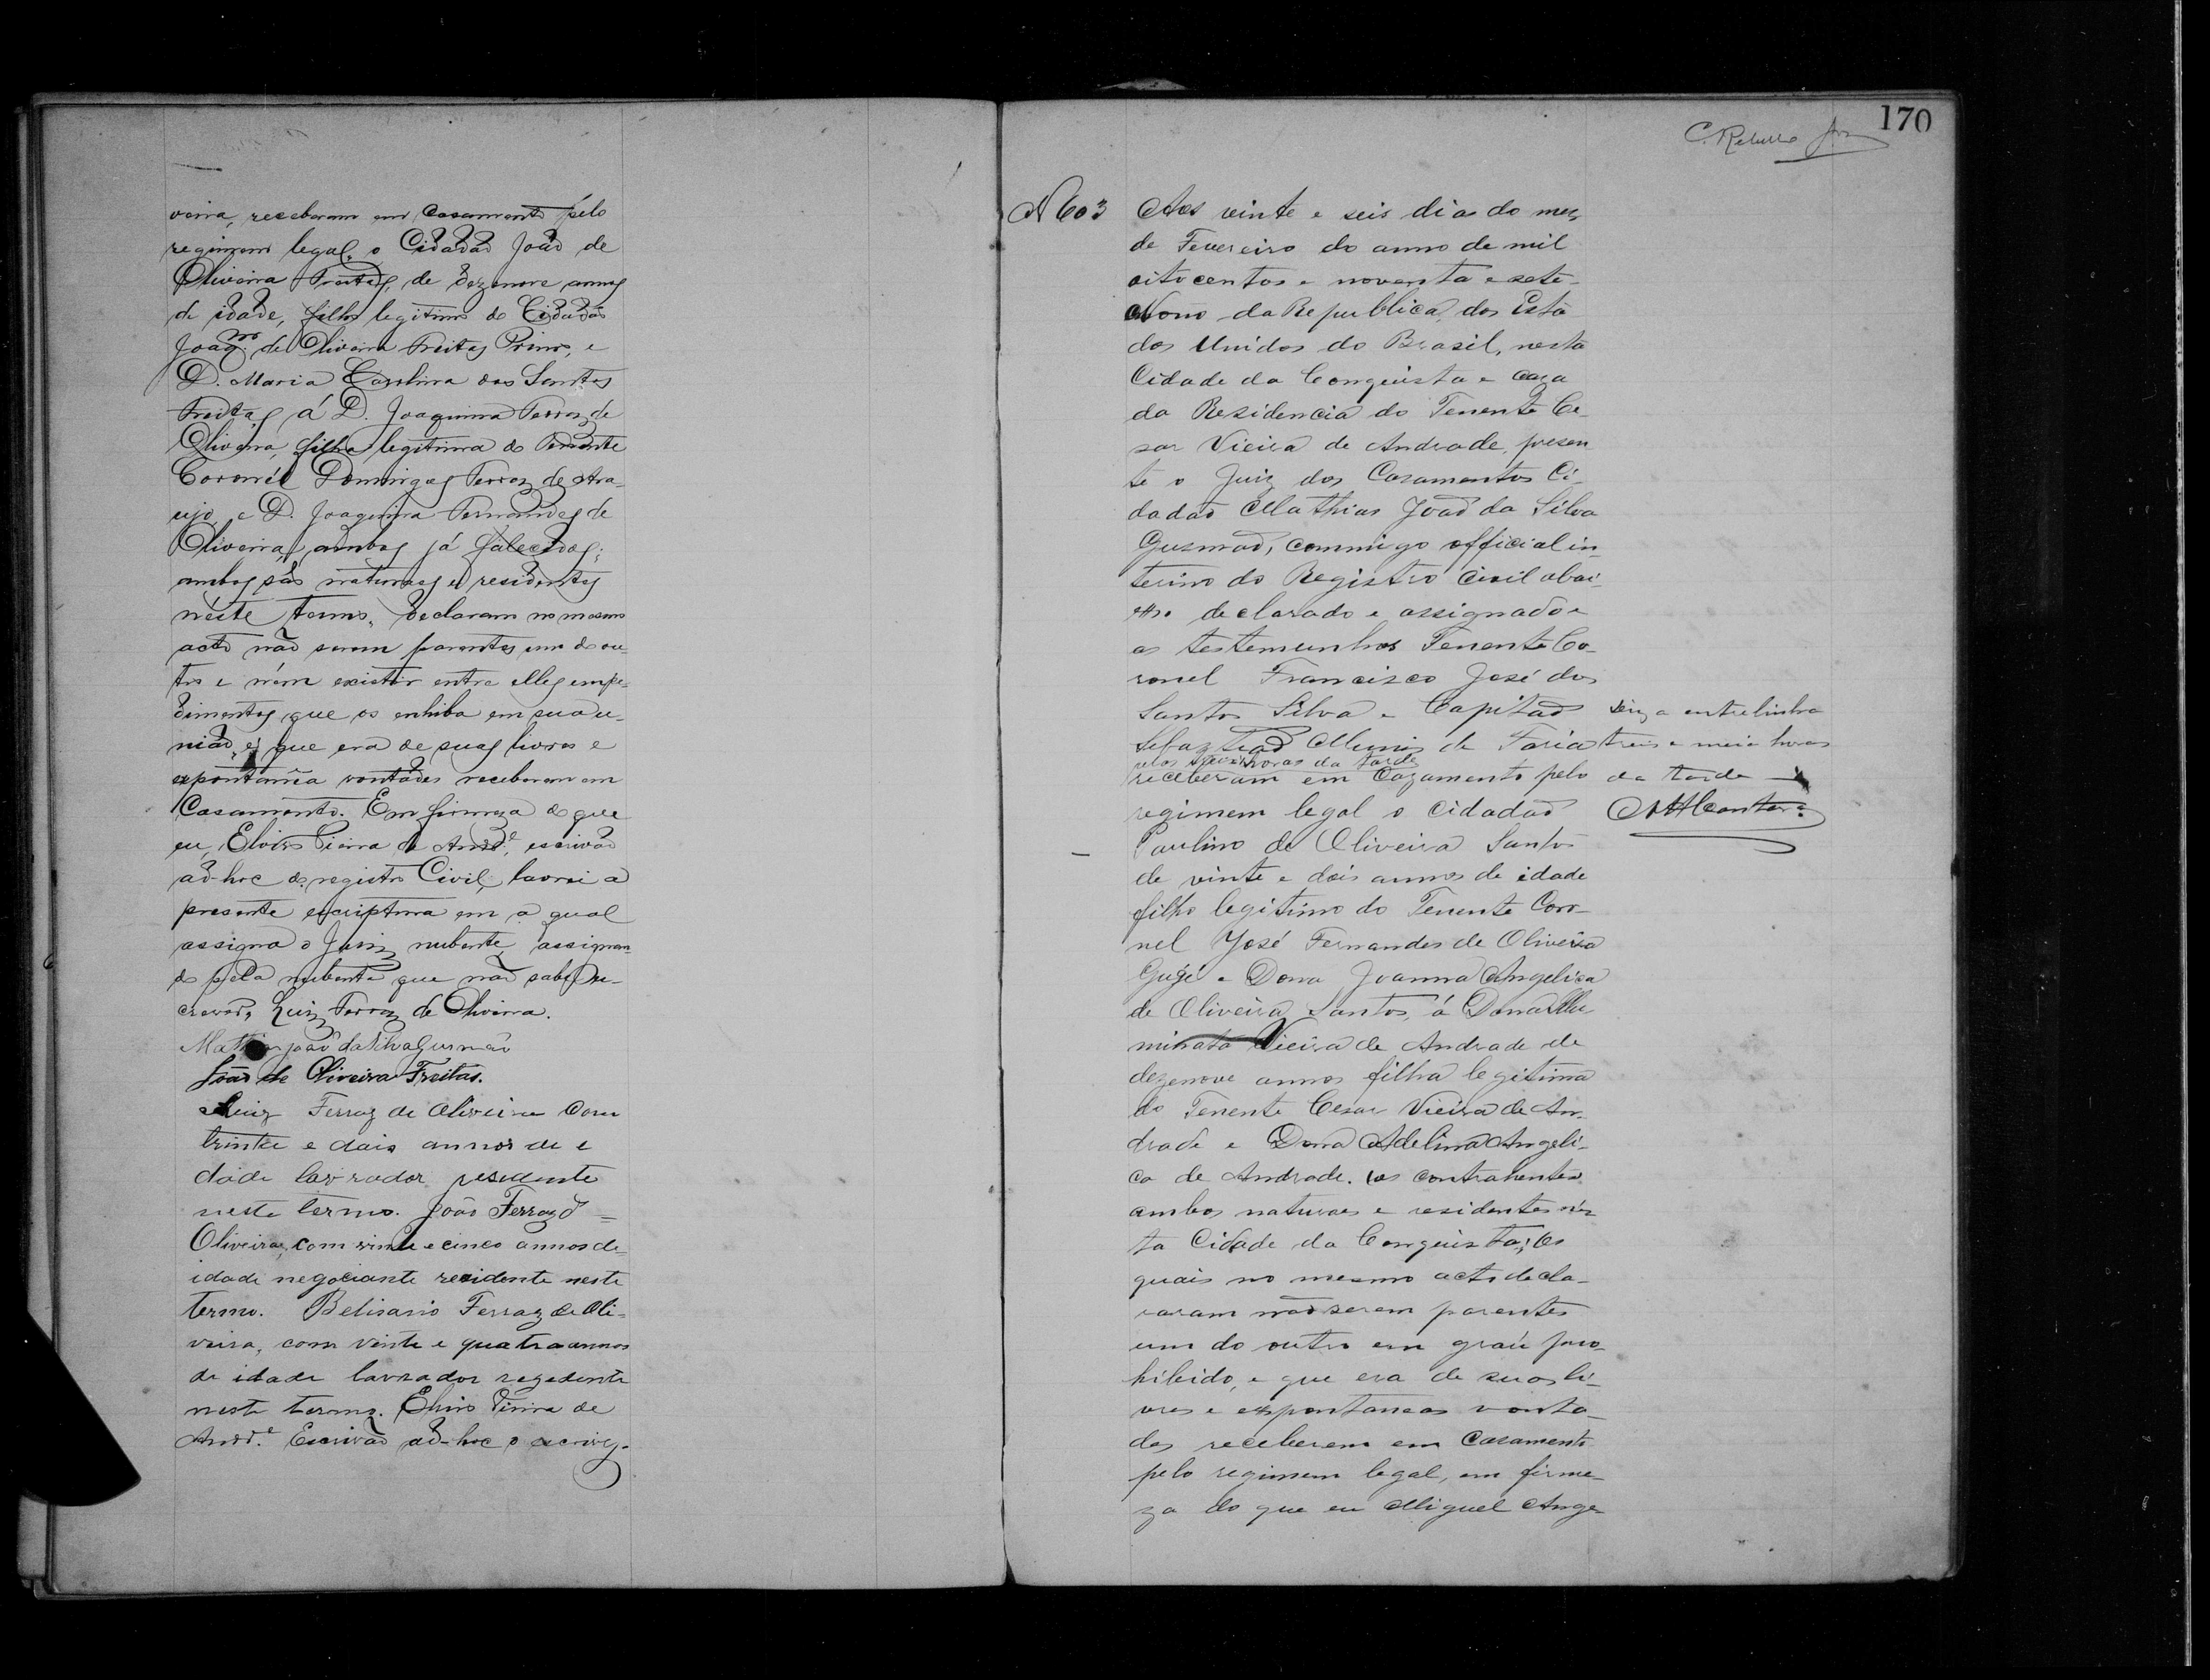 veira, receberam em Casamento pélo
regimem legal, o Cidadão João de
Oliveira Freitas, de dezenove annos
de idade, filho legitimo do Cidadão
Joaqm. de Oliveira Freitas Primo, e
D. Maria Carolina dos Santos
Freitas, á D. Joaquina Ferraz de
Oliveira, filha legitima do Tenente
Coronél Domingos Ferraz de Ara-
ujo, e D. Joaquina Fernandes de
Oliveira, ambos já falecidos;
ambos são naturaes e residentes
néste termo, declaram no mesmo
acto não serem parentes um do ou-
tro e ném existir entre elles empe-
dimentos que os enhiba em sua u-
nião, e que era de suas livres e
expontania vontades receberem em
Casamento. Em firmeza do que
eu, Elvirio Vieira de Andre, escrivão
ad-hoc do registro Civil, lavrei a
presente escriptura em a qual
assigna o Juiz, nubente, assignan-
do pela nubente que não sabe es-
crever, Luiz Ferraz de Oliveira.
Mathias João da Silva Gusmão
João de Oliveira Freitas.
Luiz Ferraz de Oliveira Com
trinta e dois annos de i
dade lavrador residente
neste termo. João Ferraz d
Oliveira, com vinte e cinco annos de
idade negociante residente neste
termo. Belisario Ferraz de Oli-
veira, com vinte e quatro annos
de idade lavrador regedente
neste termo. Vieira de
Andre. Escrivão ad-hoc o escrevy.
170
C. Rebello
N 603
Aos vinte e seis dias do mez
de Fevereiro do anno de mil
oitocentos e noventa e sete
Nono da Republica dos Esta
dos Unidos do Brasil, nesta
Cidade da Conquista e casa
da Residencia do Tenente Ce-
sar Vieira de Andrade, presen
te o Juiz dos Casamentos Ci-
dadão Mathias João da Silva
Gusmão, commigo official in-
terino do Registro Civil abai-
xo declarado e assignado e
as testemunhas Tenente Co-
ronel Francisco José dos
Santos Silva e Capitão
Sebastião Muniz de Faria
pelas horas da tarde
receberam em Cazamento pelo
regimem legal o Cidadão
Paulino de Oliveira Santos
de vinte e dois annos de idade
filho legitimo do Tenente Coro-
nel José Fernandes de Oliveira
Gugé e Dona Joanna Angelica
de Oliveira Santos, á Dona Illu
minata Vieira de Andrade de
dezenove annos filha legitima
do Tenente Cesar Vieira de An-
drade e Dona Adelina Angeli-
ca de Andrade. os contrahentes
ambos naturaes e residentes nés
ta Cidade da Conquista; Os
quais no mesmo acto decla-
raram não serem parentes
um do outro em gráu pro-
hibido, e que era de suas li-
vres e expontaneas vonta-
des receberem em Casamento
pelo regimem legal, em firme-
za do que eu Miguel Ange-
Diz a entrelinha
treis e meia horas
da tarde